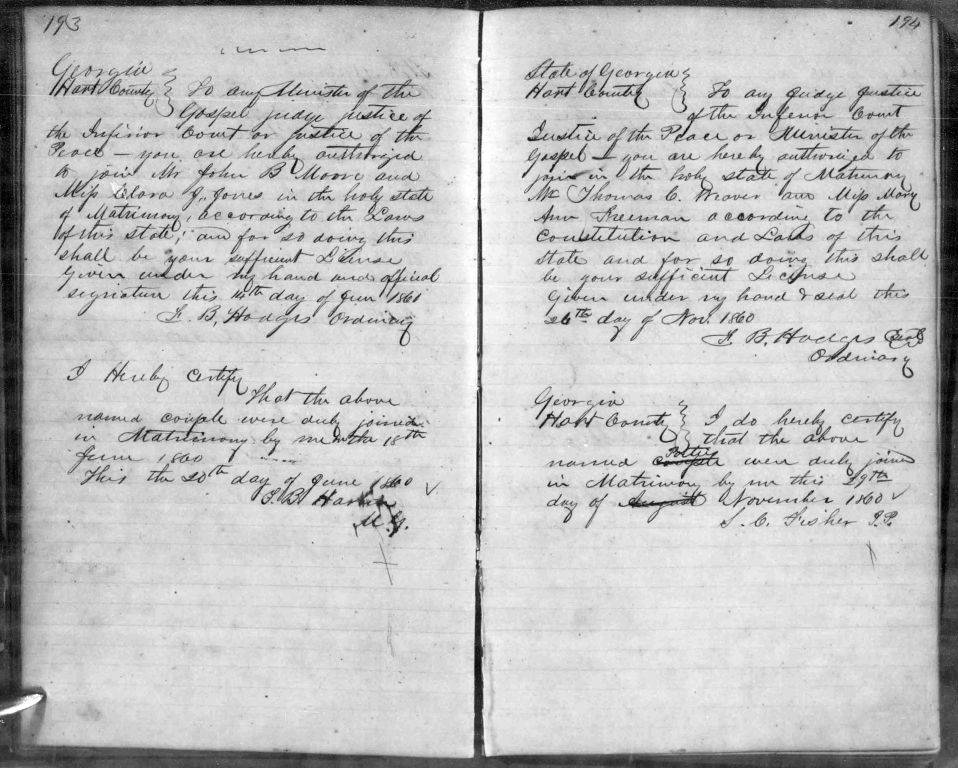 193
Georgia
Hart County } To any Minister of the
Gospel judge justice of
the Inferior Court or Justice of the
Peace – you are hereby authorized
to join Mr John B Moore and
Miss Clara J. Jones in the holy state
of Matrimony, according to the Laws
of this state, and for so doing this
shall be your sufficient License
Given under my hand and official
signature this 14th day of June 1860
F. B. Hodges Ordinary
I Hereby Certify
That the above
named couple were duly joined
in Matrimony by me on the 18th
June 1860
This the 20th day of June 1860
M. G.
194
State of Georgia
Hart County } To any judge justice
of the Inferior Court
Justice of the Peace or Minister of the
Gospel – you are hereby authorized to
join in the holy state of Matrimony
Mr Thomas C. Brover and Miss Mary
Ann Freeman according to the
Constitution and Laws of this
state and for so doing this shall
be your sufficient License
Given under my hand & seal this
26th day of Nov. 1860
F. B. Hodges Seal
Ordinary
Georgia
Hart County } I do hereby certify
that the above
Parties
named couple were duly joined
in Matrimony by me this 29th
day of August November 1860
S. C. Fisher J.P.